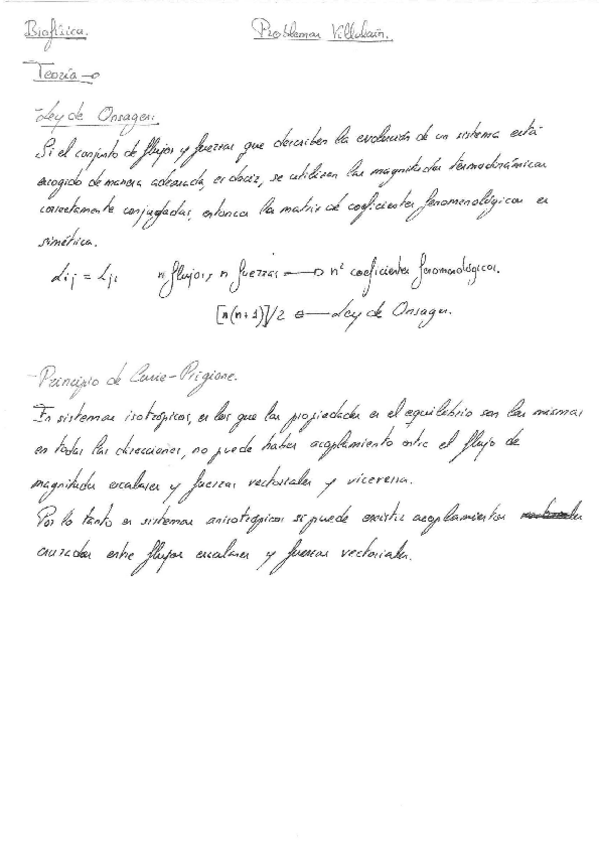 Biofísica. Problemas Villalaín.
Teoría
- Ley de Onsager:
Si el conjunto de flujos y fuerzas que describen la evolución de un sistema está
escogido de manera adecuada, es decir, se utilizan las magnitudes termodinámicas
correctamente conjugadas, entonces la matriz de coeficientes fenomenológicos es
simétrica.
Lij = Lji n flujos, n fuerzas → n² coeficientes fenomenológicos.
[n(n+1)]/2 ← Ley de Onsager.
- Principio de Curie-Prigione.
En sistemas isotrópicos, en los que las propiedades en el equilibrio son las mismas
en todas las direcciones, no puede haber acoplamiento entre el flujo de
magnitudes escalares y fuerzas vectoriales y viceversa.
Por lo tanto en sistemas anisotrópicos si puede existir acoplamientos
cruzados entre flujos escalares y fuerzas vectoriales.